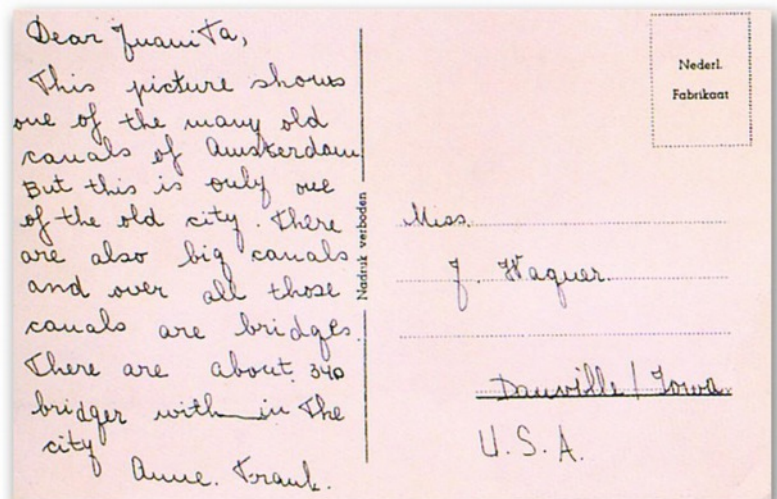 Dear Juanita,
This picture shows
one of the many old
canals of Amsterdam
But this is only one
of the old city. There
are also big canals
and over all those
canals are bridges.
There are about 340
bridges with in the
city
Anne. Frank.
Nadruk verboden
Nederl.
Fabrikaat
Miss.
J. Wagner.
Danville/Iowa
U.S.A.